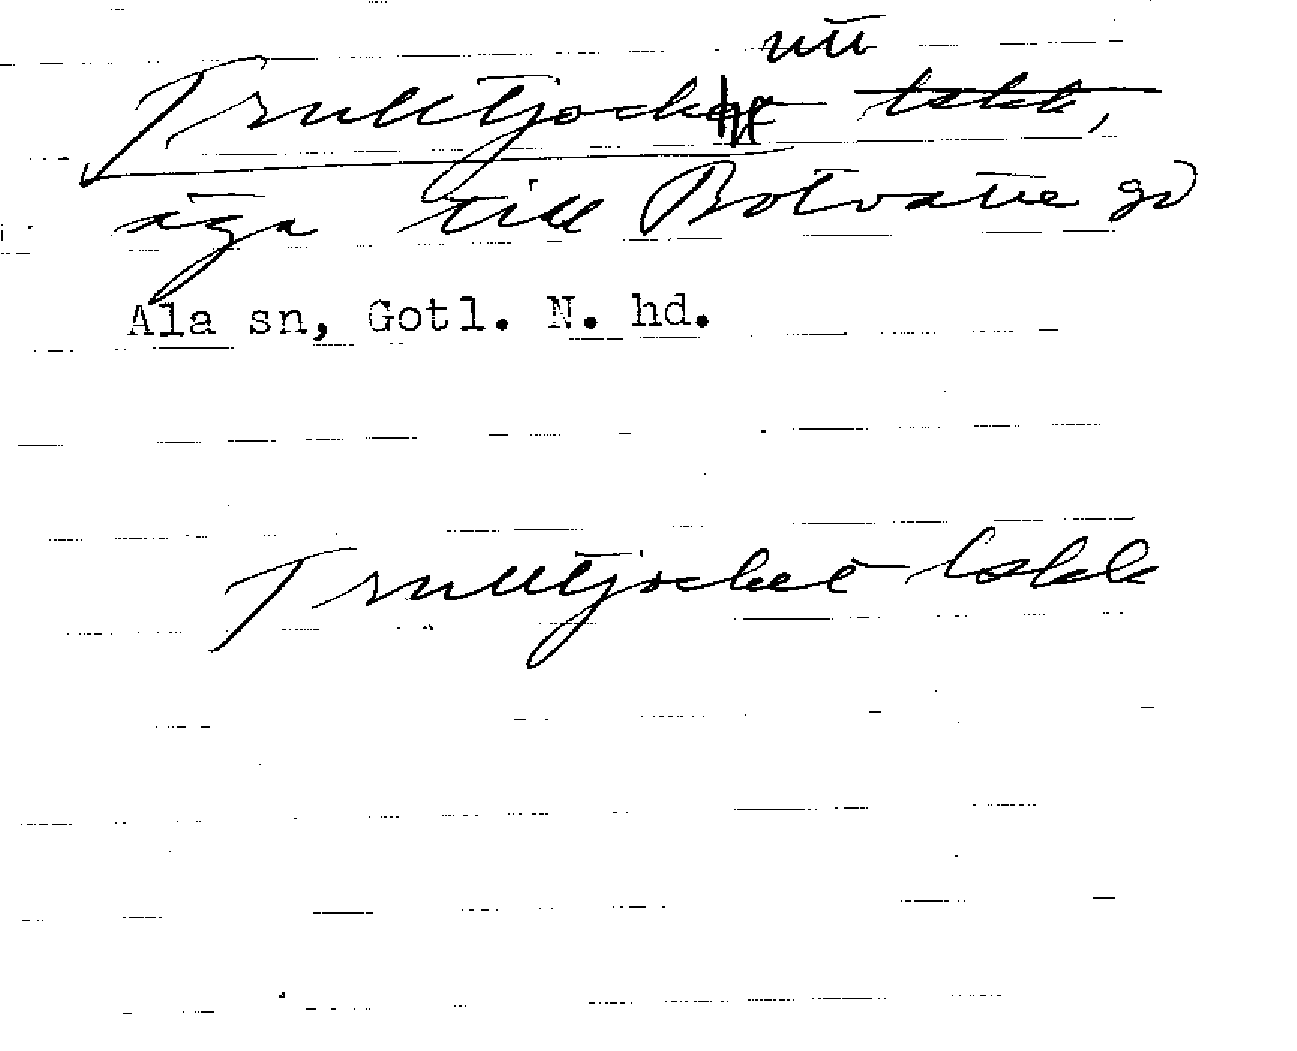 ntt
Trulltjocket lskk,
äga till Botvatte gd
Ala sn, Gotl. N. hd.
Trulltjocket lskk